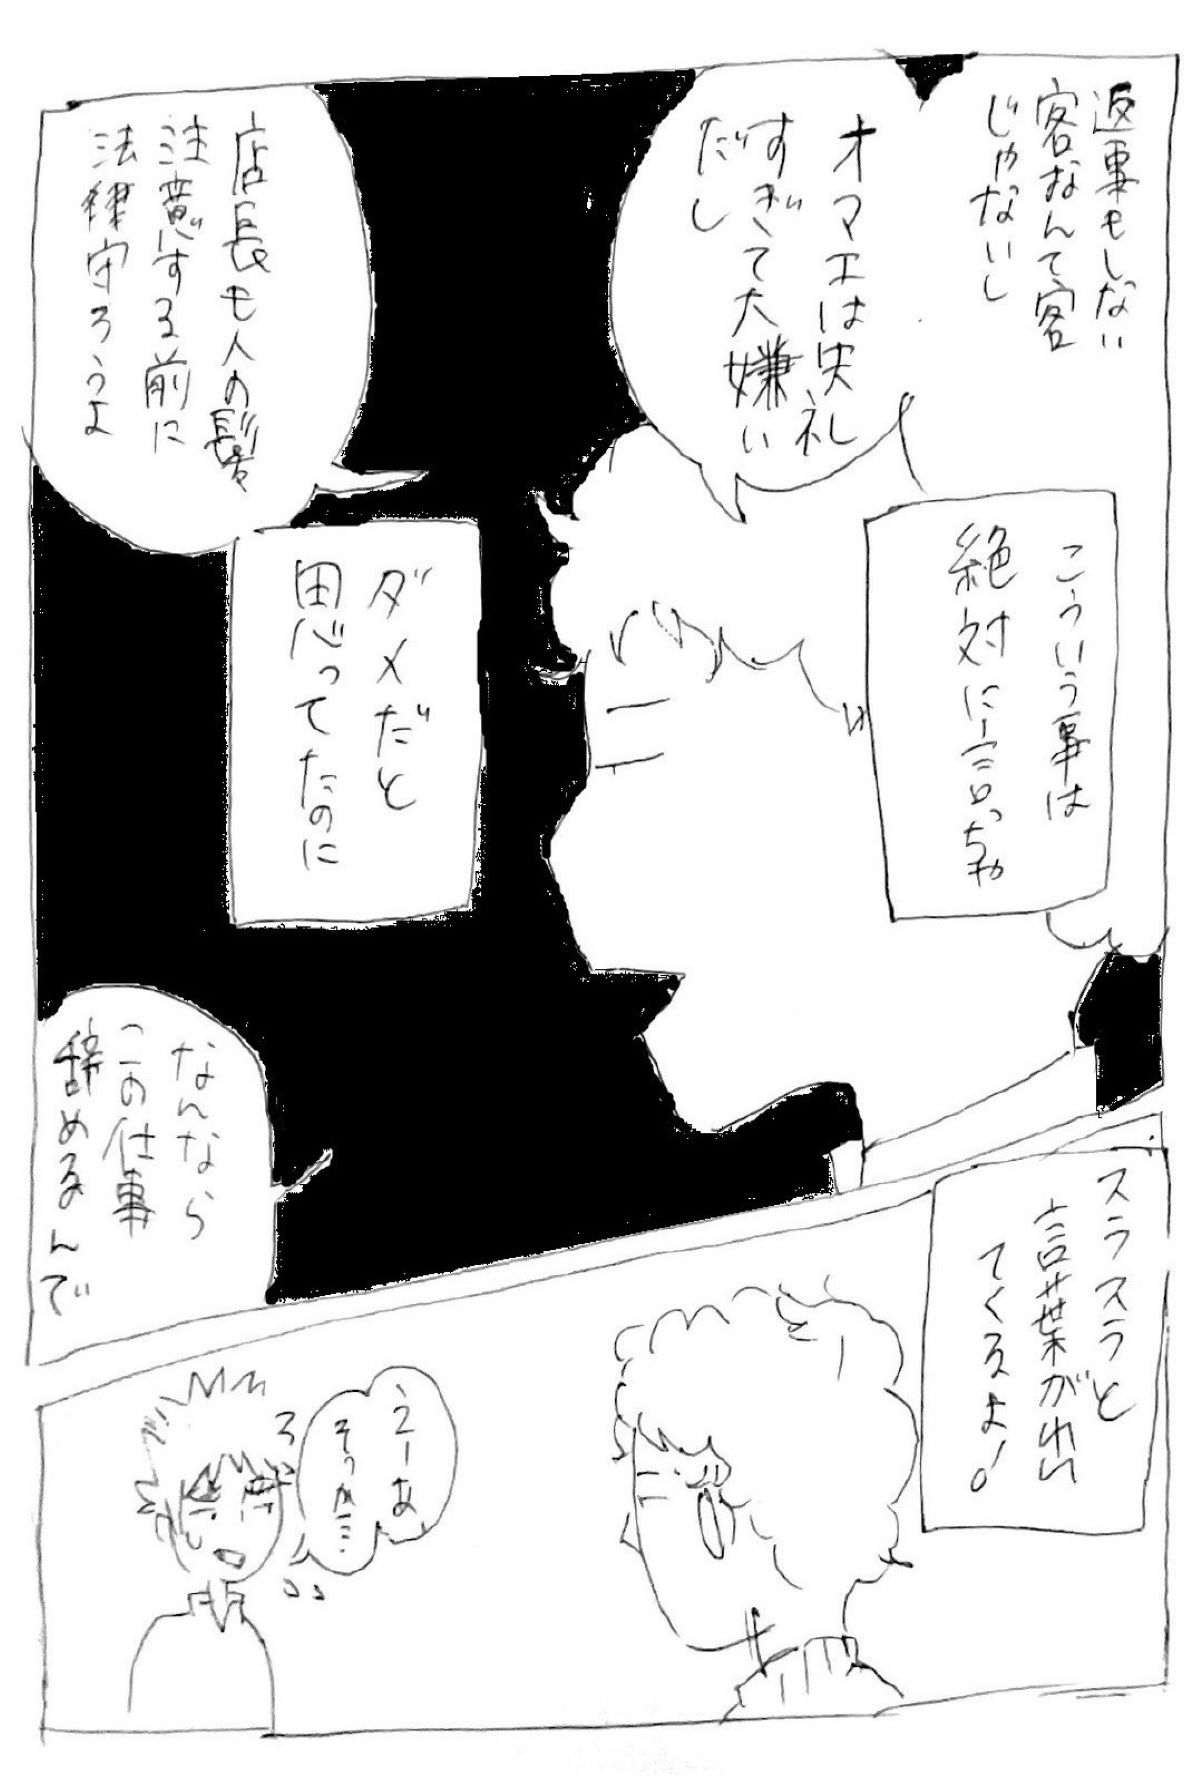 返事もしない
客なんて客
じゃないし
オマエは失礼
すぎて大嫌い
だし
こういう事は
絶対に言っちゃ
店長も人の髪
注意する前に
法律守ろうよ
ダメだと
思ってたのに
なんなら
この仕事
辞めるんで
スラスラと
言葉が出
てくるよ!。
うーあ
そっか…